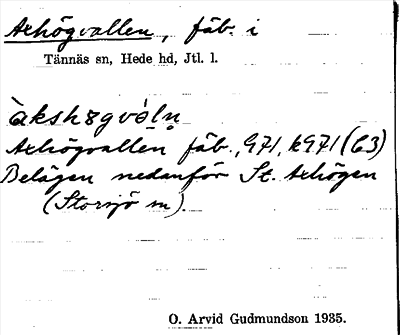 Axhögvallen, fäb. i
Tännäs sn, Hede hd, Jtl. l.
àkshøgvál̄n̥
Axhögvallen fäb., G71, k971 (63)
Belägen nedanför St. Axhögen
(Storsjö sn).
O. Arvid Gudmundson 1935.